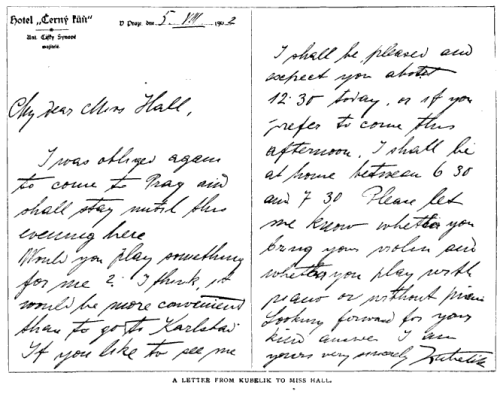 Hotel „Černý kůň"
Ant. Čížky Synové
majitelé.
V Praze dne 5. VIII 1902
My dear Miss Hall,
I was obliged again
to come to Prag and
shall stay until this
evening here
Would you play something
for me? I think, it
would be more convenient
than to go to Karlsbad
If you like to see me
I shall be pleased and
expect you about
12.30 today, or if you
prefer to come this
afternoon, I shall be
at home between 6 30
and 7 30 Please let
me know whether you
bring your violin and
whether you play with
piano or without piano
Looking forward for your
kind answer I am
yours very sincerely Kubelik
A LETTER FROM KUBELIK TO MISS HALL.